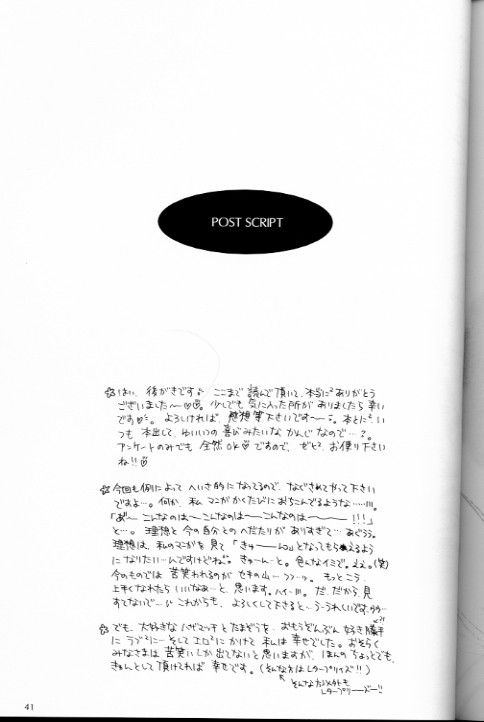 POST SCRIPT
☆はい、後がきです♪ ここまで読んで頂いて、本当にありがとう
ございました〜♡。少しでも気に入った所がありましたら幸い
です♡。よろしければ、感想等下さいです〜。本とに、い
つも本出して、ゆいいつの喜びみたいなかんじなので…。
アンケートのみでも全然OK♡ですので、ぜひ、お便り下さい
ね!!♡
☆今回も例によってへいさ的になってるので、なぐさめてやって下さい
ですよ…。何か、私、マンガかくたびにおちこんでるような……。
「あ゛〜こんなのは〜こんなのは〜こんなのは〜!!!」
と…。理想と今の自分とのへだたりがありすぎて…あぐぅぅ。
理想は、私のマンガを見て「きゅーん」となってもらえるよう
になりたいーんですけどね。きゅーんーと。色んなイミで。ええ。(笑)
今のものでは苦笑われるのがセキの山…。もっとこう
上手くなれたらいいなあーと、思います。ハイ…。だ、だから、見
すてないで…。これからも、よろしくして下さると…う・うれしいです。
☆でも、大好きな たまぞうを…おもうぞんぶん好き勝手
に ラブラブにーそしてエロエロにかけて私は幸せでした。おそらく
みなさまは苦笑いしか出てないと思いますが、ほんのちょっとでも、
きゅんとして頂ければ幸せです。(そんな方はレタープリーズ!!)
そんな方以外も
レタープリーズー!!
41